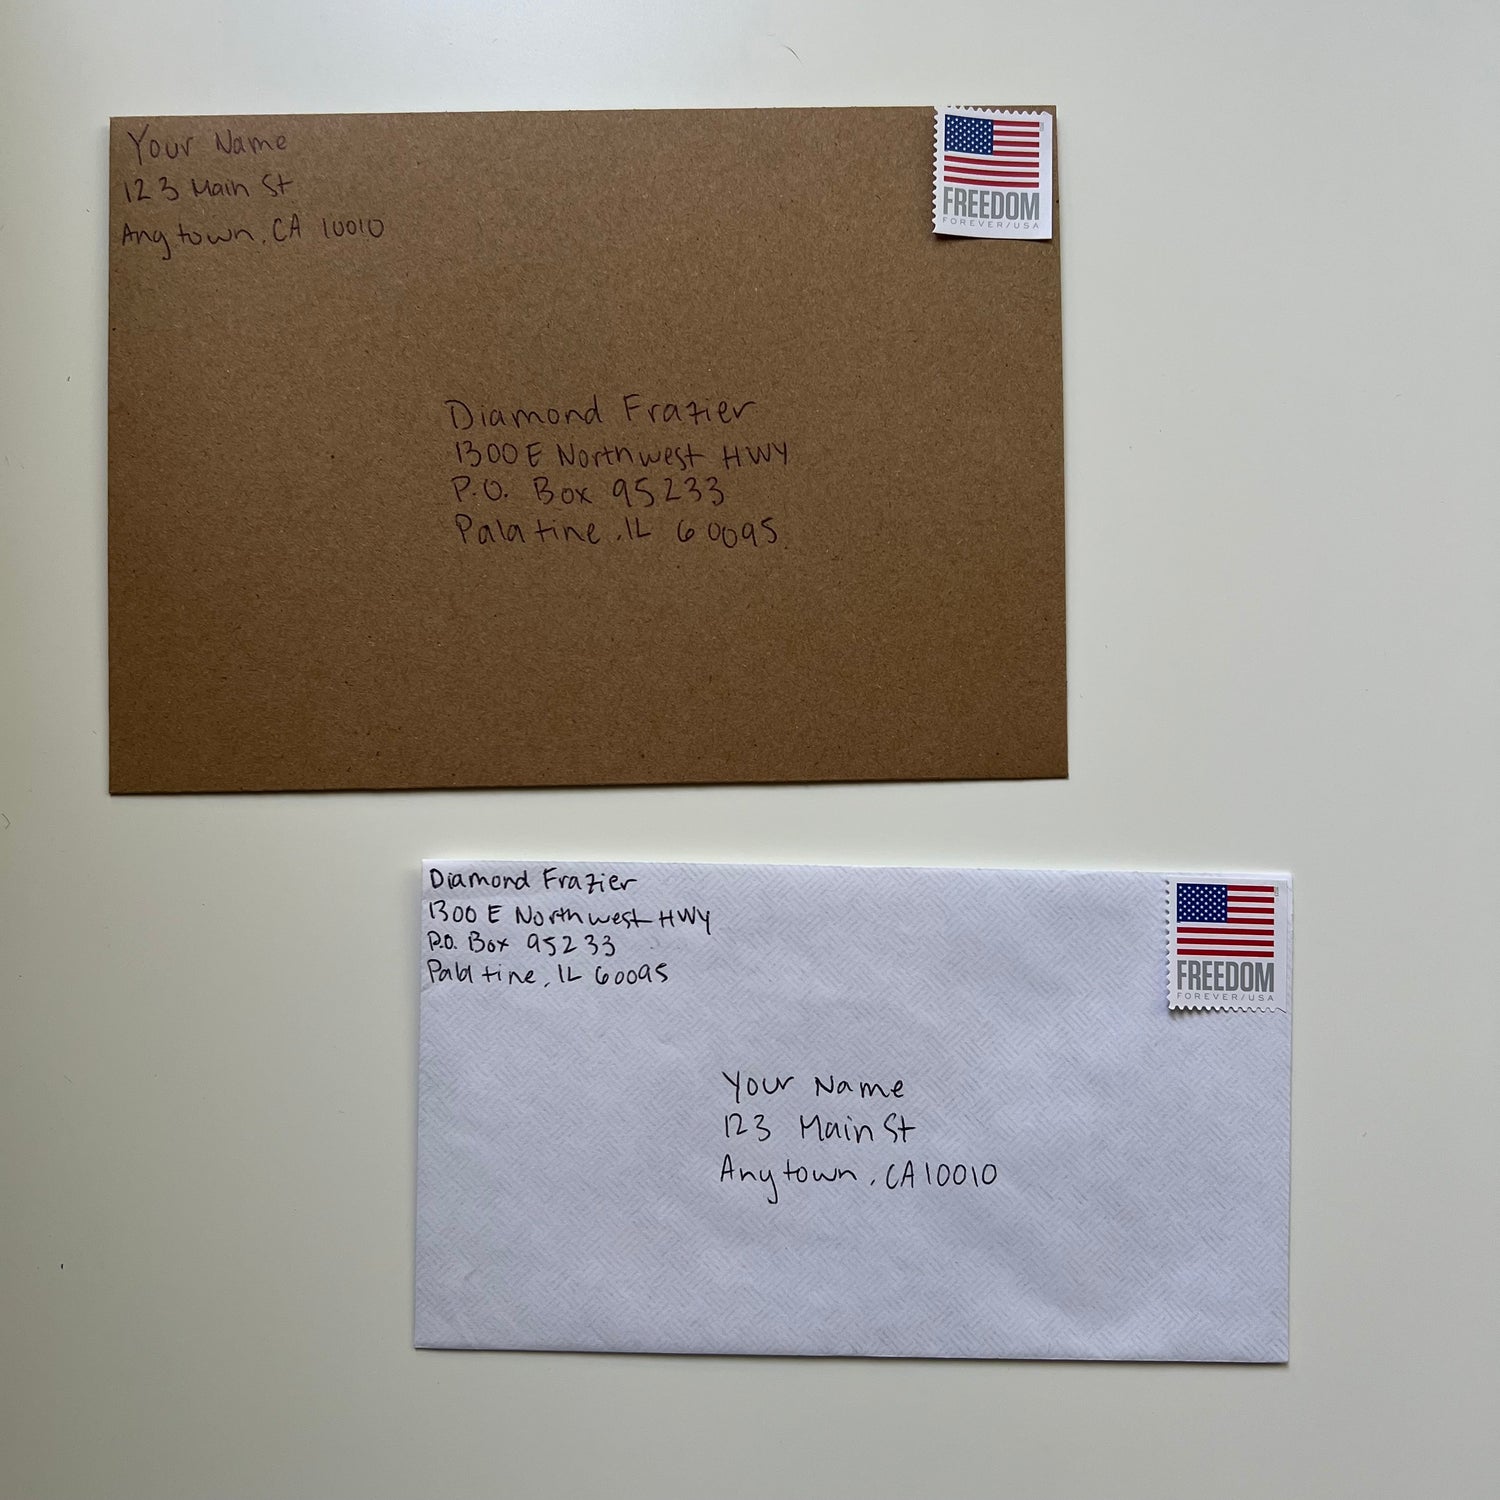 Your Name
123 Main St
Anytown, CA 10010
FREEDOM
FOREVER/USA
Diamond Frazier
1300 E Northwest HWY
P.O. Box 95233
Palatine, IL 60095
Diamond Frazier
1300 E Northwest HWY
P.O. Box 95233
Palatine, IL 60095
FREEDOM
FOREVER/USA
Your Name
123 Main St
Anytown, CA 10010